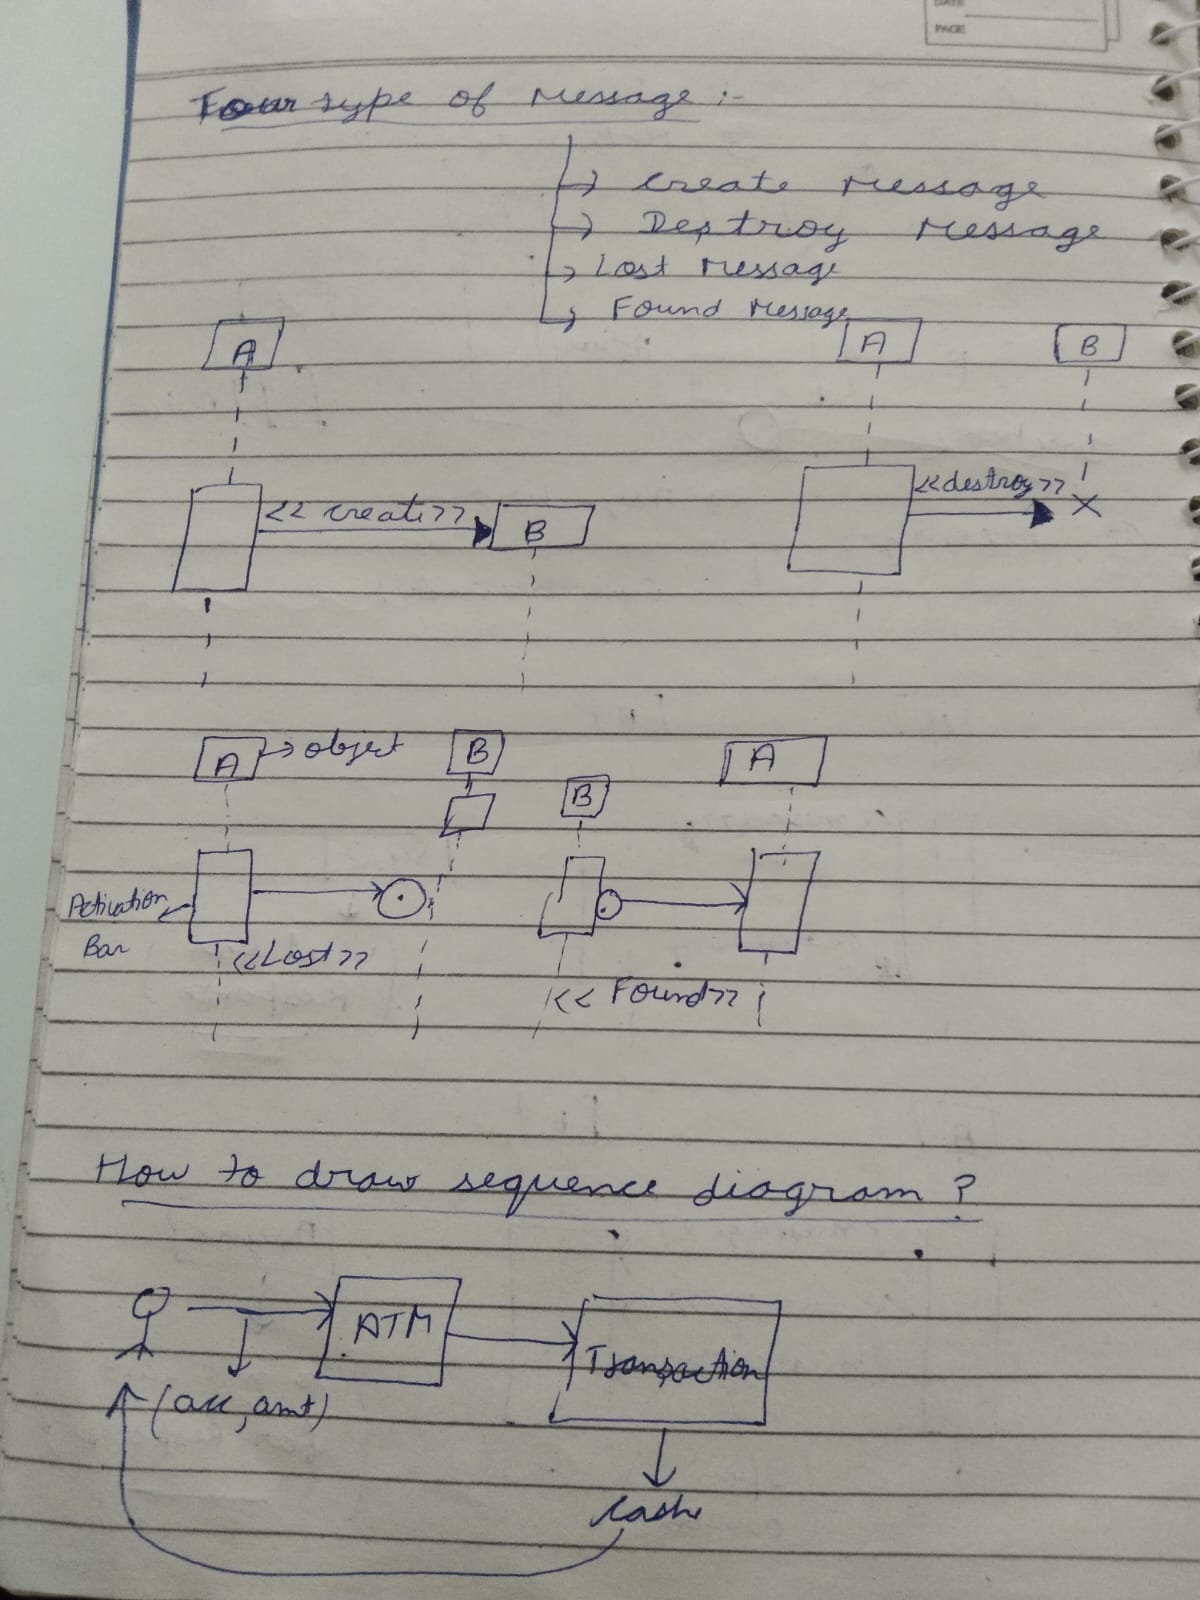 DATE
PAGE
Four type of Message :-
→ Create Message
→ Destroy Message
→ Lost Message
→ Found Message
A
A
B
<< create >>
B
<<destroy>>
A → object
B
B
A
Activation
Bar
<<Lost>>
<< Found>>
How to draw sequence diagram ?
ATM
Transaction
(acc, amt)
Cash